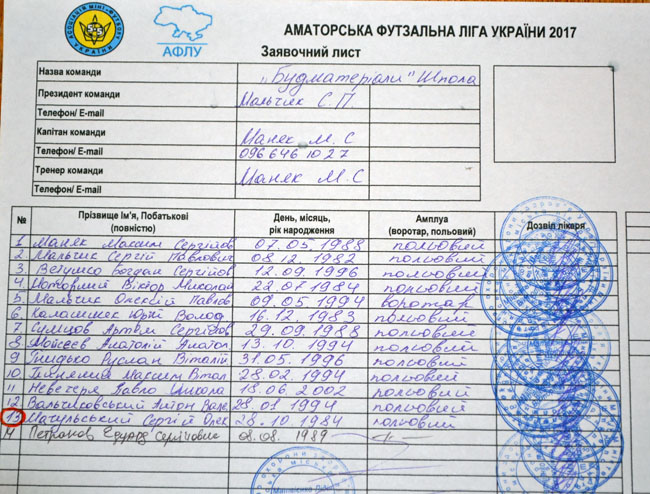 АСОЦІАЦІЯ МІНІ-ФУТБОЛУ УКРАЇНИ
АФЛУ
АМАТОРСЬКА ФУТЗАЛЬНА ЛІГА УКРАЇНИ 2017
Заявочний лист
Назва команди „Будматеріали" Шпола
Президент команди Мальчик С.П.
Телефон/ E-mail
Капітан команди Маняк М.С
Телефон/ E-mail 096 646 10 27
Тренер команди Маняк М.С
Телефон/ E-mail
№ Прізвище Ім'я, Побатькові (повністю) День, місяць, рік народження Амплуа (воротар, польовий) Дозвіл лікаря
1 Маняк Максим Сергійов 07.05.1988 польовий
2 Мальчик Сергій Павлович 08.12.1982 польовий
3 Богдан Сергійов 12.09.1996 польовий
4 Віктор Миколай 22.07.1984 польовий
5 Мальчик 09.05.1994 воротар
6 Юрій Волод 16.12.1983 польовий
7 Артем Сергійов 29.09.1988 польовий
8 Мойсеєв Анатолій Анатол 13.10.1994 польовий
9 Руслан Віталій 31.05.1996 польовий
10 Максим Вітал 28.02.1994 польовий
11 Павло Микола 18.06.2002 польовий
12 Вальчиковський Антон Вале 28.01.1994 польовий
13 Сергій Олек 28.10.1984 польовий
14 Едуард Сергійович 08.08.1989